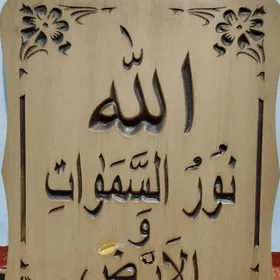 الله
نُورُ السَّمَوَاتِ
وَ
الْاَرْضِ